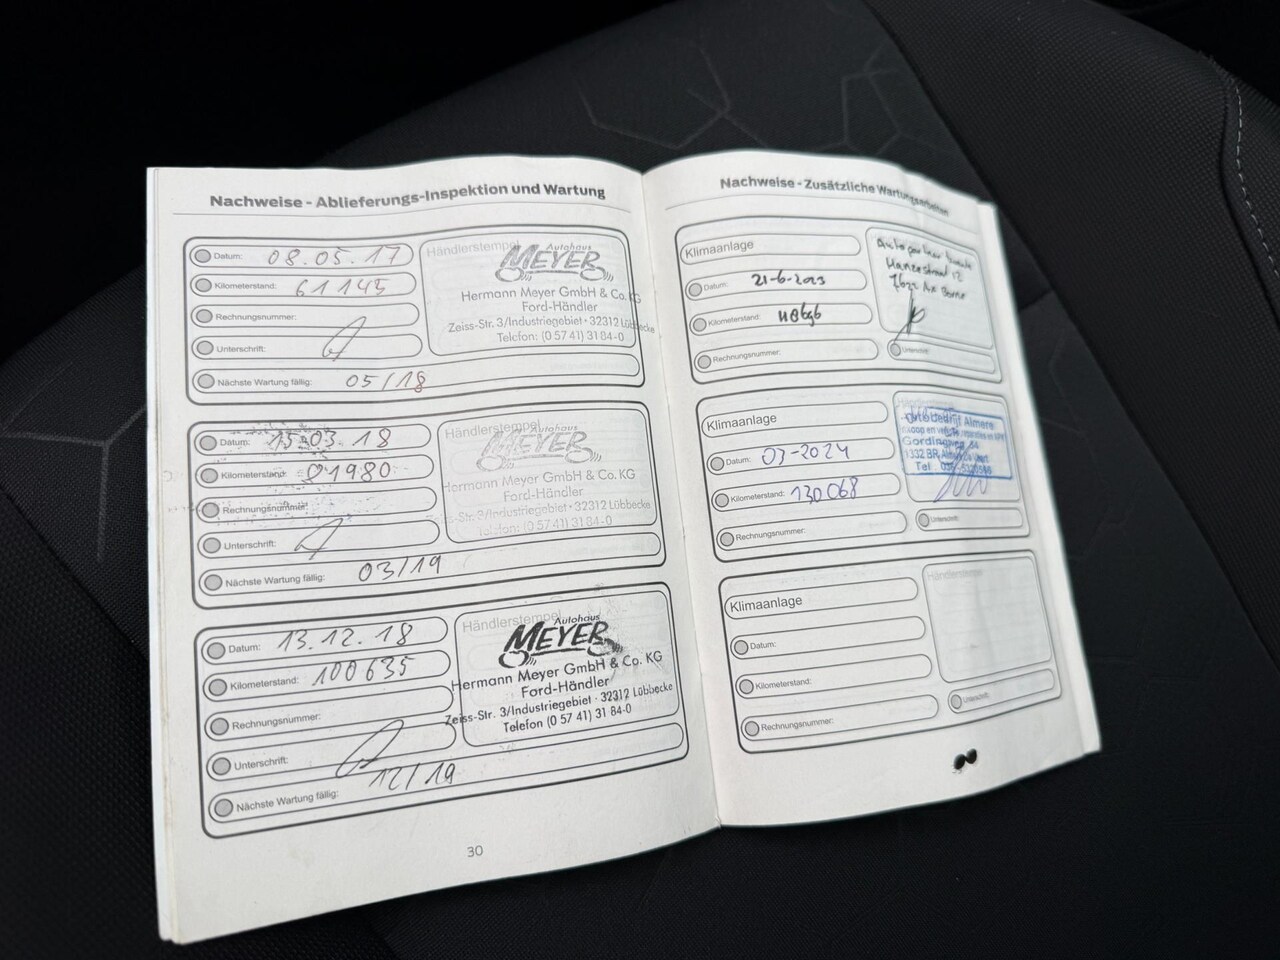 Nachweise - Ablieferungs-Inspektion und Wartung
Datum: 08.05.17
Kilometerstand: 61145
Rechnungsnummer:
Unterschrift:
Nächste Wartung fällig: 05/18
Händlerstempel
Autohaus
MEYER
Hermann Meyer GmbH & Co. KG
Ford-Händler
Zeiss-Str. 3/Industriegebiet · 32312 Lübbecke
Telefon: (0 57 41) 31 84-0
Datum: 15.03.18
Kilometerstand: 81980
Rechnungsnummer:
Unterschrift:
Nächste Wartung fällig: 03/19
Händlerstempel
Autohaus
MEYER
Hermann Meyer GmbH & Co. KG
Ford-Händler
Zeiss-Str. 3/Industriegebiet · 32312 Lübbecke
Telefon: (0 57 41) 31 84-0
Datum: 13.12.18
Kilometerstand: 100635
Rechnungsnummer:
Unterschrift:
Nächste Wartung fällig: 12/19
Händlerstempel
Autohaus
MEYER
Hermann Meyer GmbH & Co. KG
Ford-Händler
Zeiss-Str. 3/Industriegebiet · 32312 Lübbecke
Telefon (0 57 41) 31 84-0
30
Nachweise - Zusätzliche Wartungsarbeiten
Klimaanlage
Datum: 21-6-2023
Kilometerstand:
Rechnungsnummer:
Hanzestraat 12
Borne
Unterschrift:
Klimaanlage
Datum: 03-2024
Kilometerstand: 130068
Rechnungsnummer:
Händlerstempel
Autobedrijf Almere
Gordingweg
1332 BR
Tel
Unterschrift:
Klimaanlage
Datum:
Kilometerstand:
Rechnungsnummer:
Händlerstempel
Unterschrift: